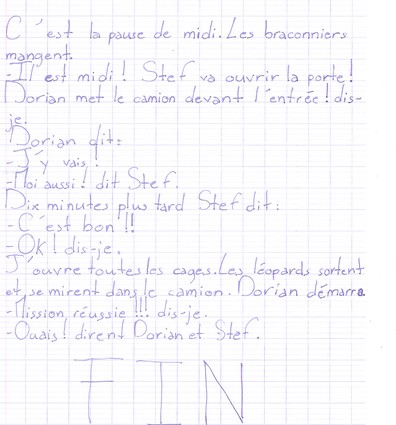 C'est la pause de midi. Les braconniers
mangent.
-Il est midi ! Stef va ouvrir la porte !
Dorian met le camion devant l'entrée ! dis-
je.
Dorian dit :
-J'y vais !
-Moi aussi ! dit Stef.
Dix minutes plus tard Stef dit :
-C'est bon !!
-OK ! dis-je.
J'ouvre toutes les cages. Les léopards sortent
et se mirent dans le camion. Dorian démarra.
-Mission réussie !!! dis-je.
-Ouais ! dirent Dorian et Stef.
FIN